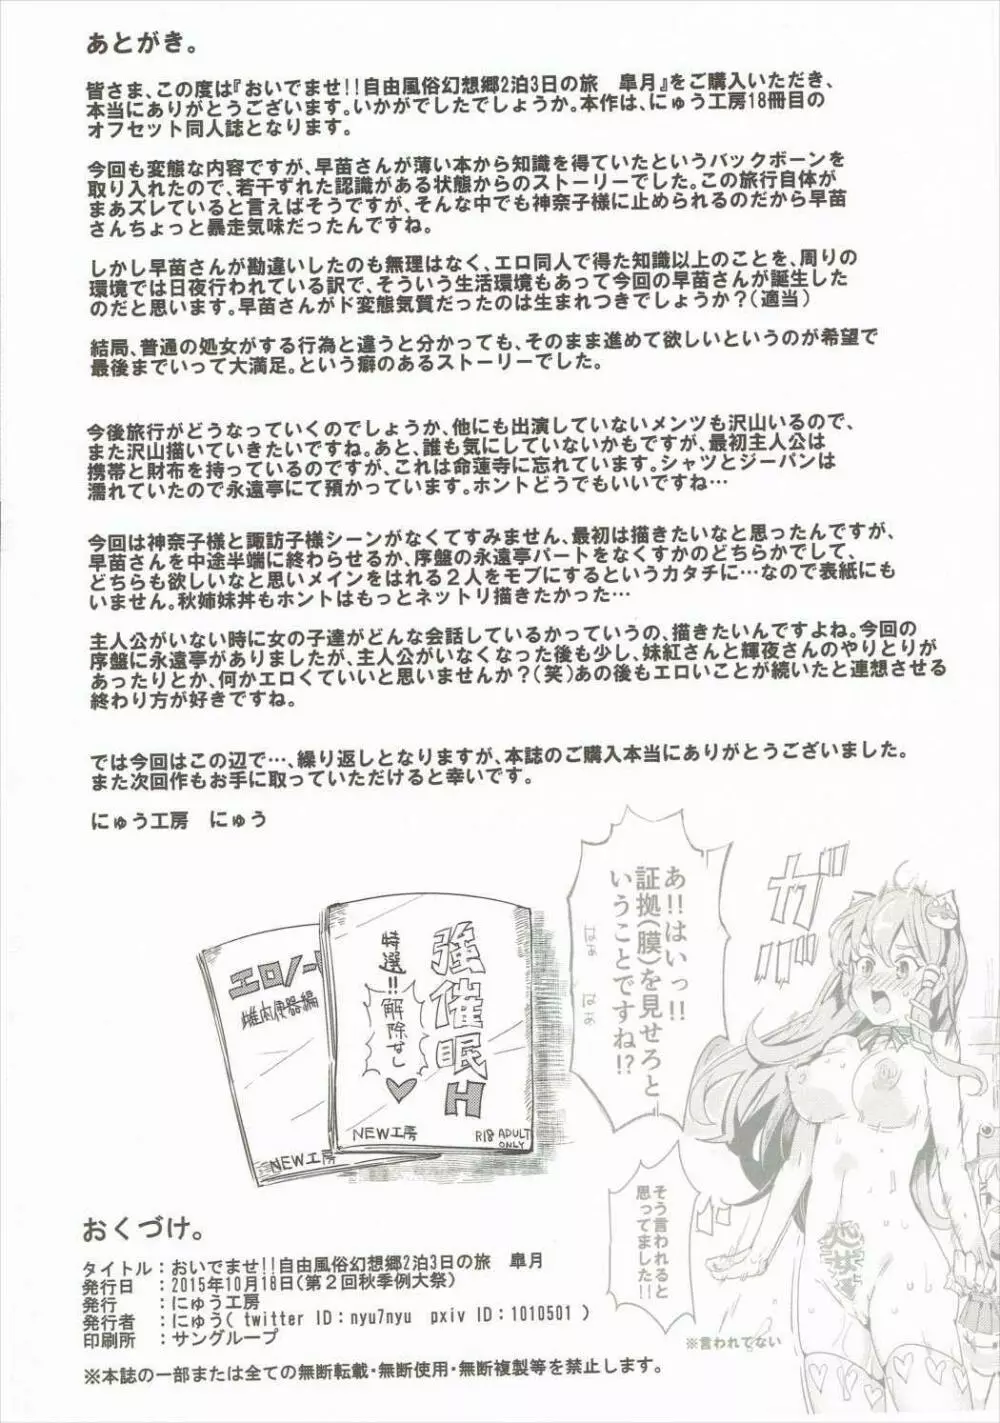 あとがき。
皆さま、この度は『おいでませ!!自由風俗幻想郷2泊3日の旅　皐月』をご購入いただき、
本当にありがとうございます。いかがでしたでしょうか。本作は、にゅう工房18冊目の
オフセット同人誌となります。
今回も変態な内容ですが、早苗さんが薄い本から知識を得ていたというバックボーンを
取り入れたので、若干ずれた認識がある状態からのストーリーでした。この旅行自体が
まあズレていると言えばそうですが、そんな中でも神奈子様に止められるのだから早苗
さんちょっと暴走気味だったんですね。
しかし早苗さんが勘違いしたのも無理はなく、エロ同人で得た知識以上のことを、周りの
環境では日夜行われている訳で、そういう生活環境もあって今回の早苗さんが誕生した
のだと思います。早苗さんがド変態気質だったのは生まれつきでしょうか？(適当)
結局、普通の処女がする行為と違うと分かっても、そのまま進めて欲しいというのが希望で
最後までいって大満足。という癖のあるストーリーでした。
今後旅行がどうなっていくのでしょうか、他にも出演していないメンツも沢山いるので、
また沢山描いていきたいですね。あと、誰も気にしていないかもですが、最初主人公は
携帯と財布を持っているのですが、これは命蓮寺に忘れています。シャツとジーパンは
濡れていたので永遠亭にて預かっています。ホントどうでもいいですね…
今回は神奈子様と諏訪子様シーンがなくてすみません、最初は描きたいなと思ったんですが、
早苗さんを中途半端に終わらせるか、序盤の永遠亭パートをなくすかのどちらかでして、
どちらも欲しいなと思いメインをはれる２人をモブにするというカタチに…なので表紙にも
いません。秋姉妹丼もホントはもっとネットリ描きたかった…
主人公がいない時に女の子達がどんな会話しているかっていうの、描きたいんですよね。今回の
序盤に永遠亭がありましたが、主人公がいなくなった後も少し、妹紅さんと輝夜さんのやりとりが
あったりとか、何かエロくていいと思いませんか？(笑)あの後もエロいことが続いたと連想させる
終わり方が好きですね。
では今回はこの辺で…、繰り返しとなりますが、本誌のご購入本当にありがとうございました。
また次回作もお手に取っていただけると幸いです。
にゅう工房　にゅう
ガバッ
あ!!はいっ!!
証拠(膜)を見せろと
いうことですね!?
はぁ
はぁ
強催眠H
特選!!解除なし
NEW工房
R18 ADULT
ONLY
エロノー
雌肉便器編
NEW工房
そう言われると
思ってました!!
処女
※言われてない
おくづけ。
タイトル：おいでませ!!自由風俗幻想郷2泊3日の旅　皐月
発行日　：2015年10月18日(第２回秋季例大祭)
発行　　：にゅう工房
発行者　：にゅう( twitter ID：nyu7nyu　pxiv ID：1010501 )
印刷所　：サングループ
※本誌の一部または全ての無断転載・無断使用・無断複製等を禁止します。